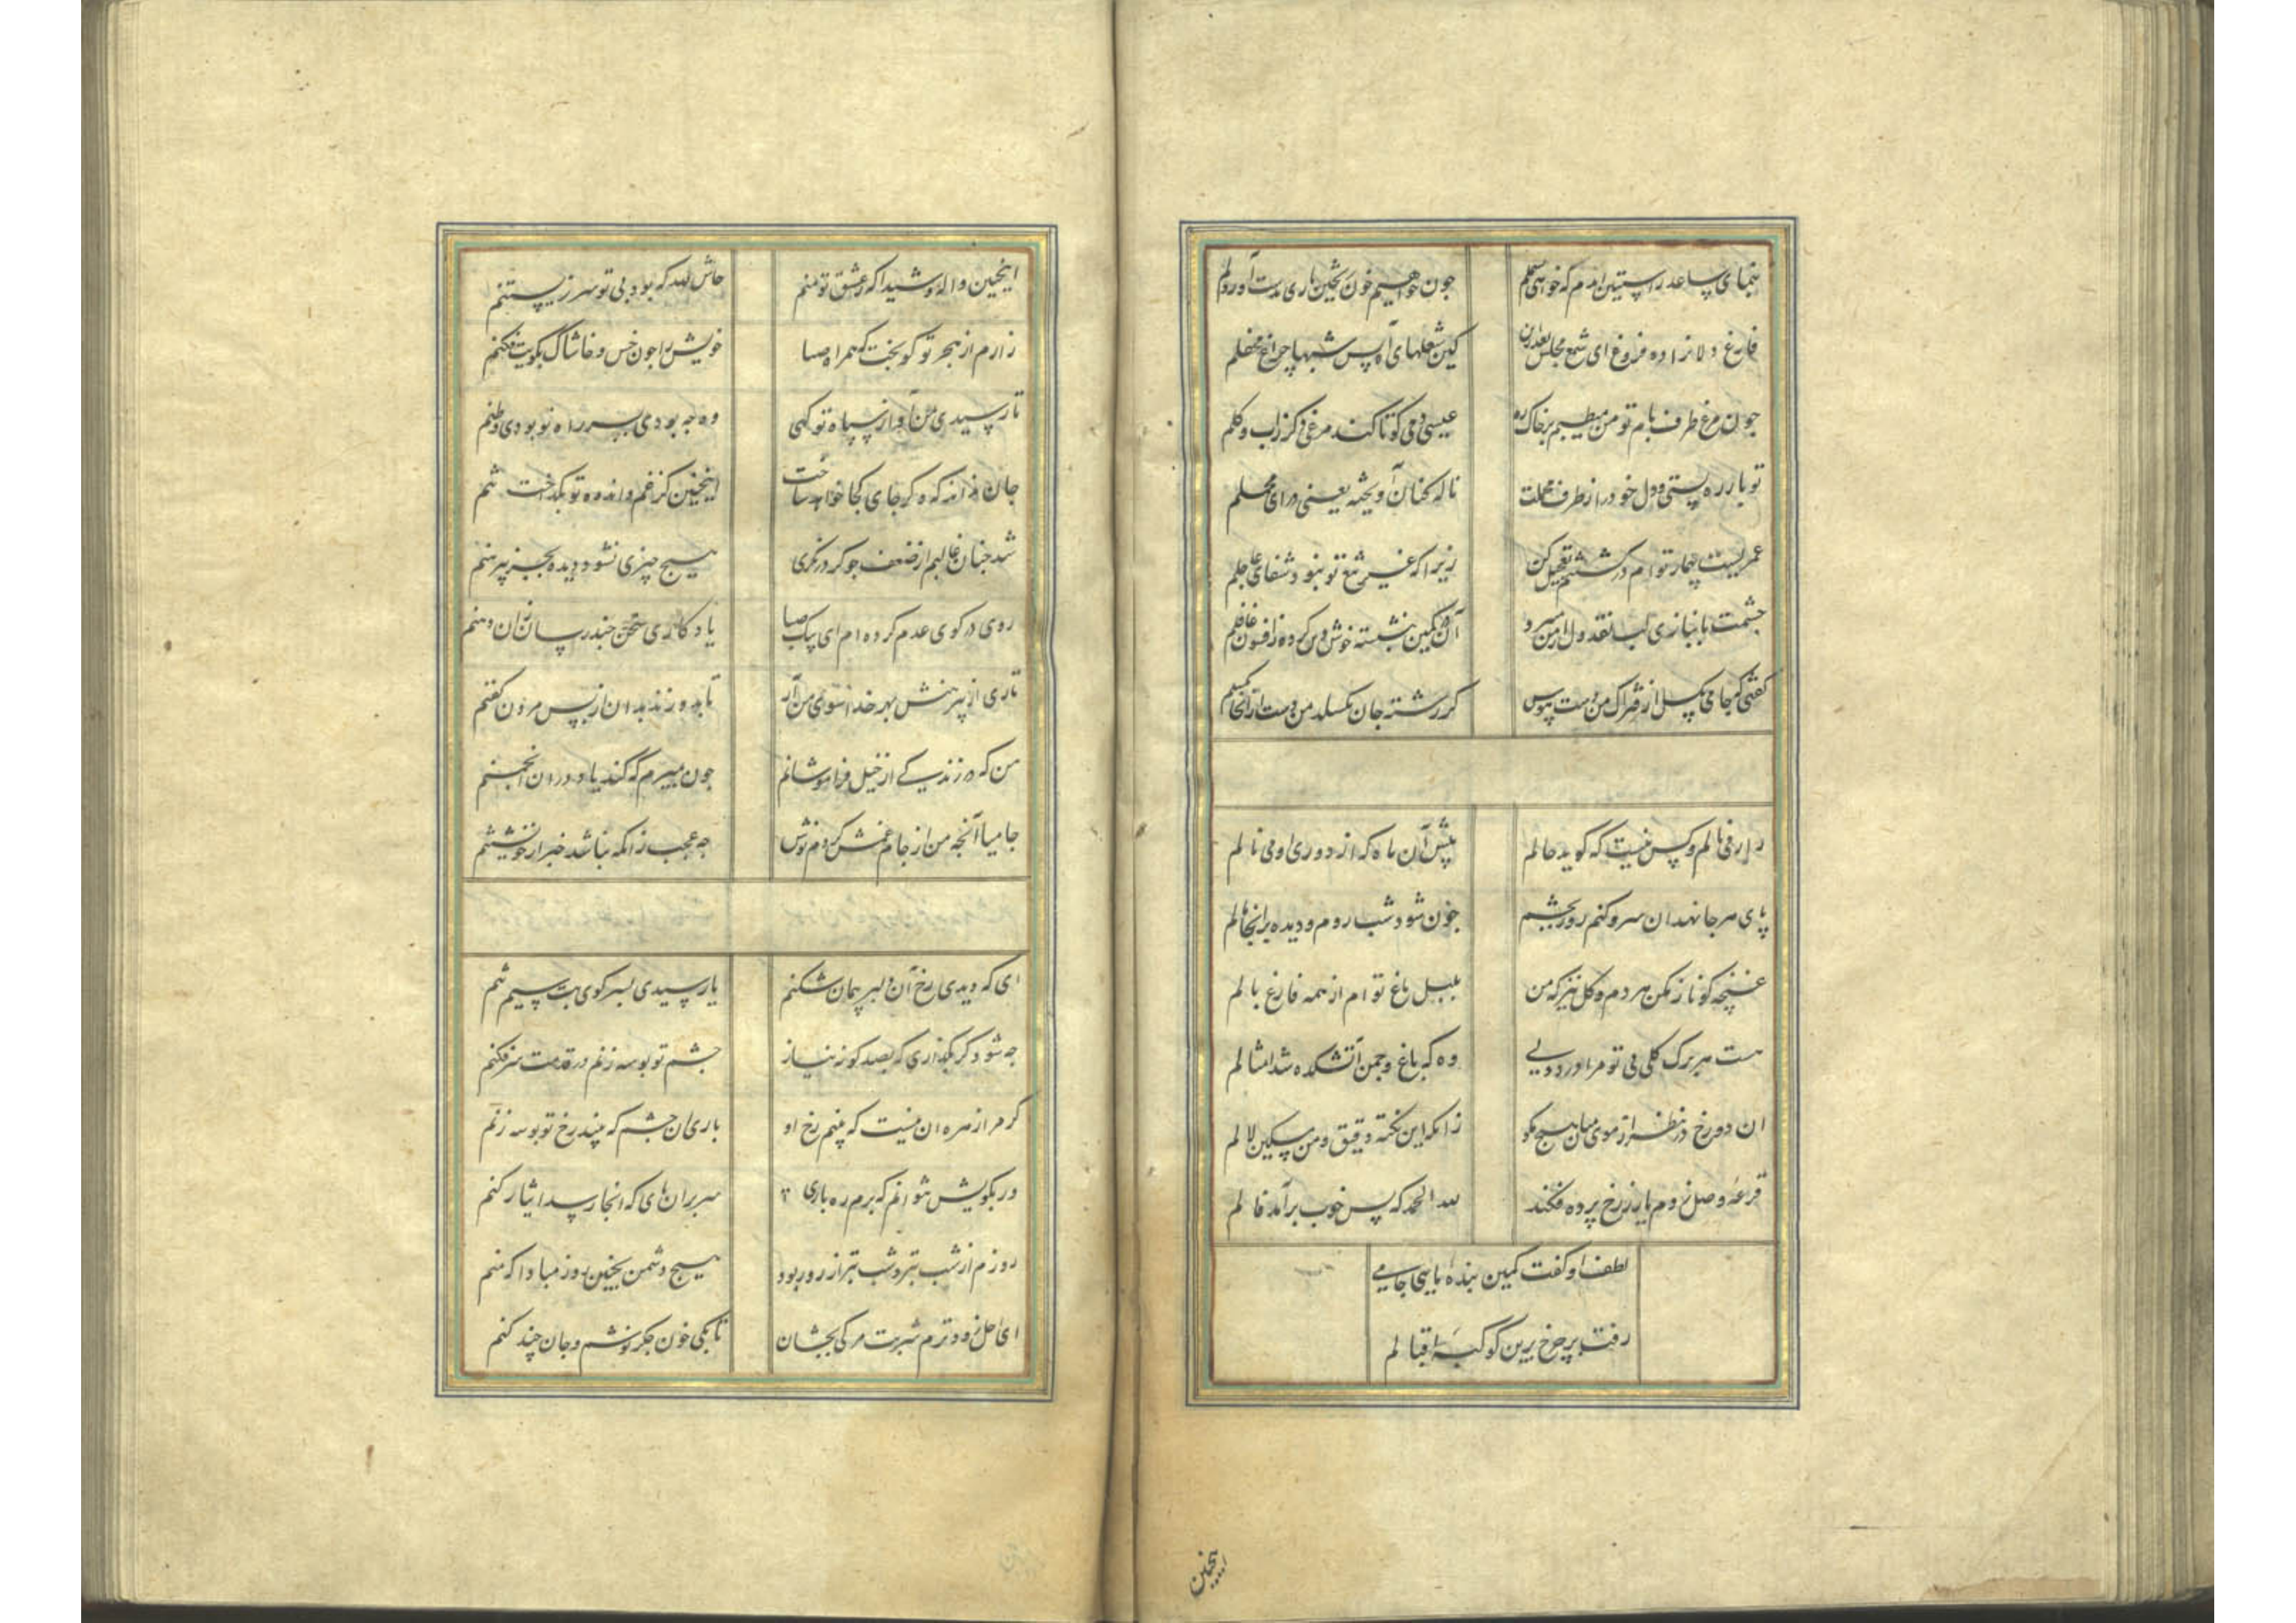 بنمای ساعد ز آستین اندم که خواهی بسملم چون خواهیم خون ریختن باری بدست آور دلم
فارغ دلانرا ده فروغ ای شمع مجلس بعد ازین کین شعلهای آه بس شبها چراغ محفلم
چون مرغ طرف بام تو من میطپم بر خاک ره عیسی دمی کو تا کند مرغی دگر ز آب و گلم
تو بار ره بستی و دل خود را ز طرف محملت ناله کنان آویخته یعنی درای محملم
عمریست بیمار توام در کشتنم تعجیل کن زیرا که غیر تیغ تو نبود شفای عاجلم
چشمت بابنازی لب نقد دل از من میبرد آن در کمین بنشسته خوش وین کرده ز افسون غافلم
کفتی که جامی بگسل از فتراک من دست هوس گر رشته جان بگسلد من دست ازانجا نگسلم
زار می نالم و کس نیست که کوید حالم پیش آن ماه که از دوری او می نالم
پای هر جا نهد ان سرو کنم روز بچشم چون شود شب روم و دیده بر انجا مالم
غنچه کو ناز مکن هر دم و گل نیز که من بلبل باغ توام از همه فارغ بالم
هست هر برک کلی بی تو مرا داغ دلی وه که باغ و چمن آتشکده شد امثالم
ان دو رخ در نظر از موی میان هیچ مکو زانکه این نکته دقیق و من مسکین لالم
قرعه وصل زدم یار ز رخ پرده فکند لله الحمد که بس خوب برآمد فالم
لطف او کفت کمین بنده مایی جامی
رفت بر چرخ برین کوکبه اقبالم
اینچنین
اینچنین واله و شیدا که ز عشق تو منم حاش لله که بود بی تو سر زیستنم
زارم از هجر تو کو بخت که همراه صبا خویش را چون خس و خاشاک بکویت فکنم
تا رسیدی بمن آواز سپاه تو کهی وه چه بودی بسر راه تو بودی وطنم
جان نداند که دگر جای کجا خواهد ساخت اینچنین کز غم و اندوه تو بگداخت تنم
شد چنان غالبم از ضعف چو گر در نکری هیچ چیزی نشود دیده بجز پیرهنم
روی در کوی عدم کرده ام ای پیک صبا یادگاری سخنی چند رسان زان دهنم
تاری از پیرهنش بهر خدا سوی من آر تا بدوزند بدان از پس مردن کفنم
من که در زندگی از خیل فراموشانم چون بمیرم که کند یاد دران انجمنم
جامیا آنچه من از جام غمش کردم نوش چه عجب زانکه نباشد خبر از خویشتنم
ای که دیدی رخ آن دلبر پیمان شکنم یا رسیدی بسر کوی بت سیم تنم
چه شود کر بگذاری که بصد کونه نیاز چشم تو بوسه زنم در قدمت سر فکنم
کر مرا زهره ان نیست که بینم رخ او باری ان چشم که بیند رخ تو بوسه زنم
ور بکویش نتوانم که برم ره باری سر بران پای که انجا رسد ایثار کنم
روزم از شب بتر و شب بتر از روز بود هیچ دشمن بچنین روز مبادا که منم
ای اجل زودترم شربت مرک بچشان تا بکی خون جکر نوشم و جان چند کنم